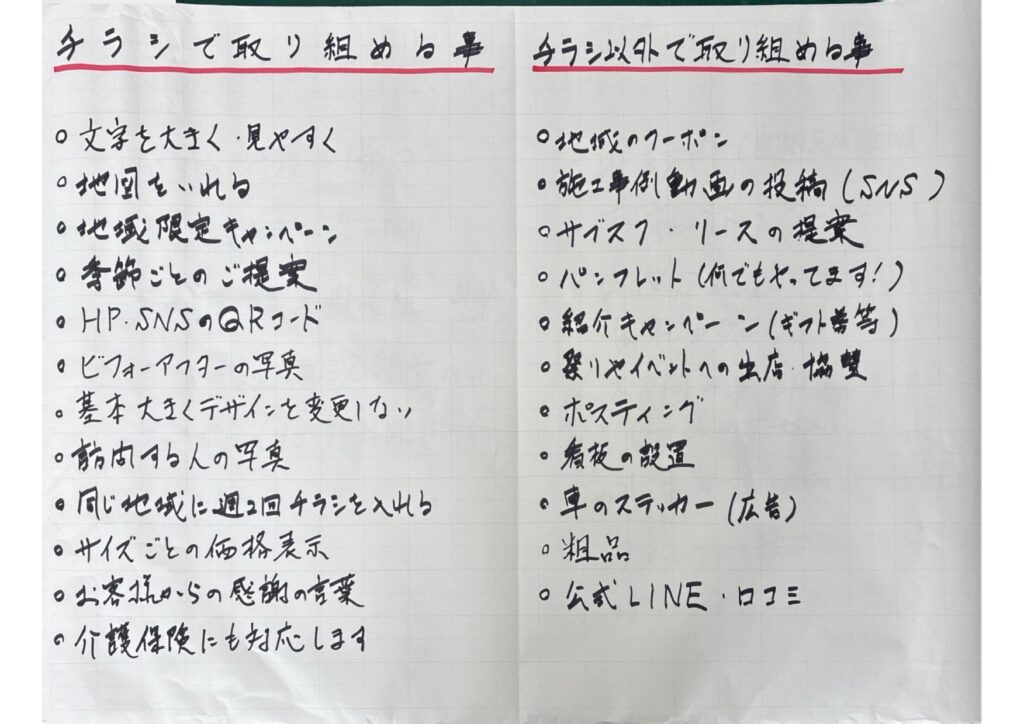 チラシで取り組める事
○ 文字を大きく・見やすく
○ 地図をいれる
○ 地域限定キャンペーン
○ 季節ごとのご提案
○ HP・SNSのQRコード
○ ビフォーアフターの写真
○ 基本大きくデザインを変更しない
○ 訪問する人の写真
○ 同じ地域に週2回チラシを入れる
○ サイズごとの価格表示
○ お客様からの感謝の言葉
○ 介護保険にも対応します
チラシ以外で取り組める事
○ 地域のクーポン
○ 施工事例動画の投稿(SNS)
○ サブスク・リースの提案
○ パンフレット(何でもやってます!)
○ 紹介キャンペーン(ギフト券等)
○ 祭りやイベントへの出店・協賛
○ ポスティング
○ 看板の設置
○ 車のステッカー(広告)
○ 粗品
○ 公式LINE・口コミ